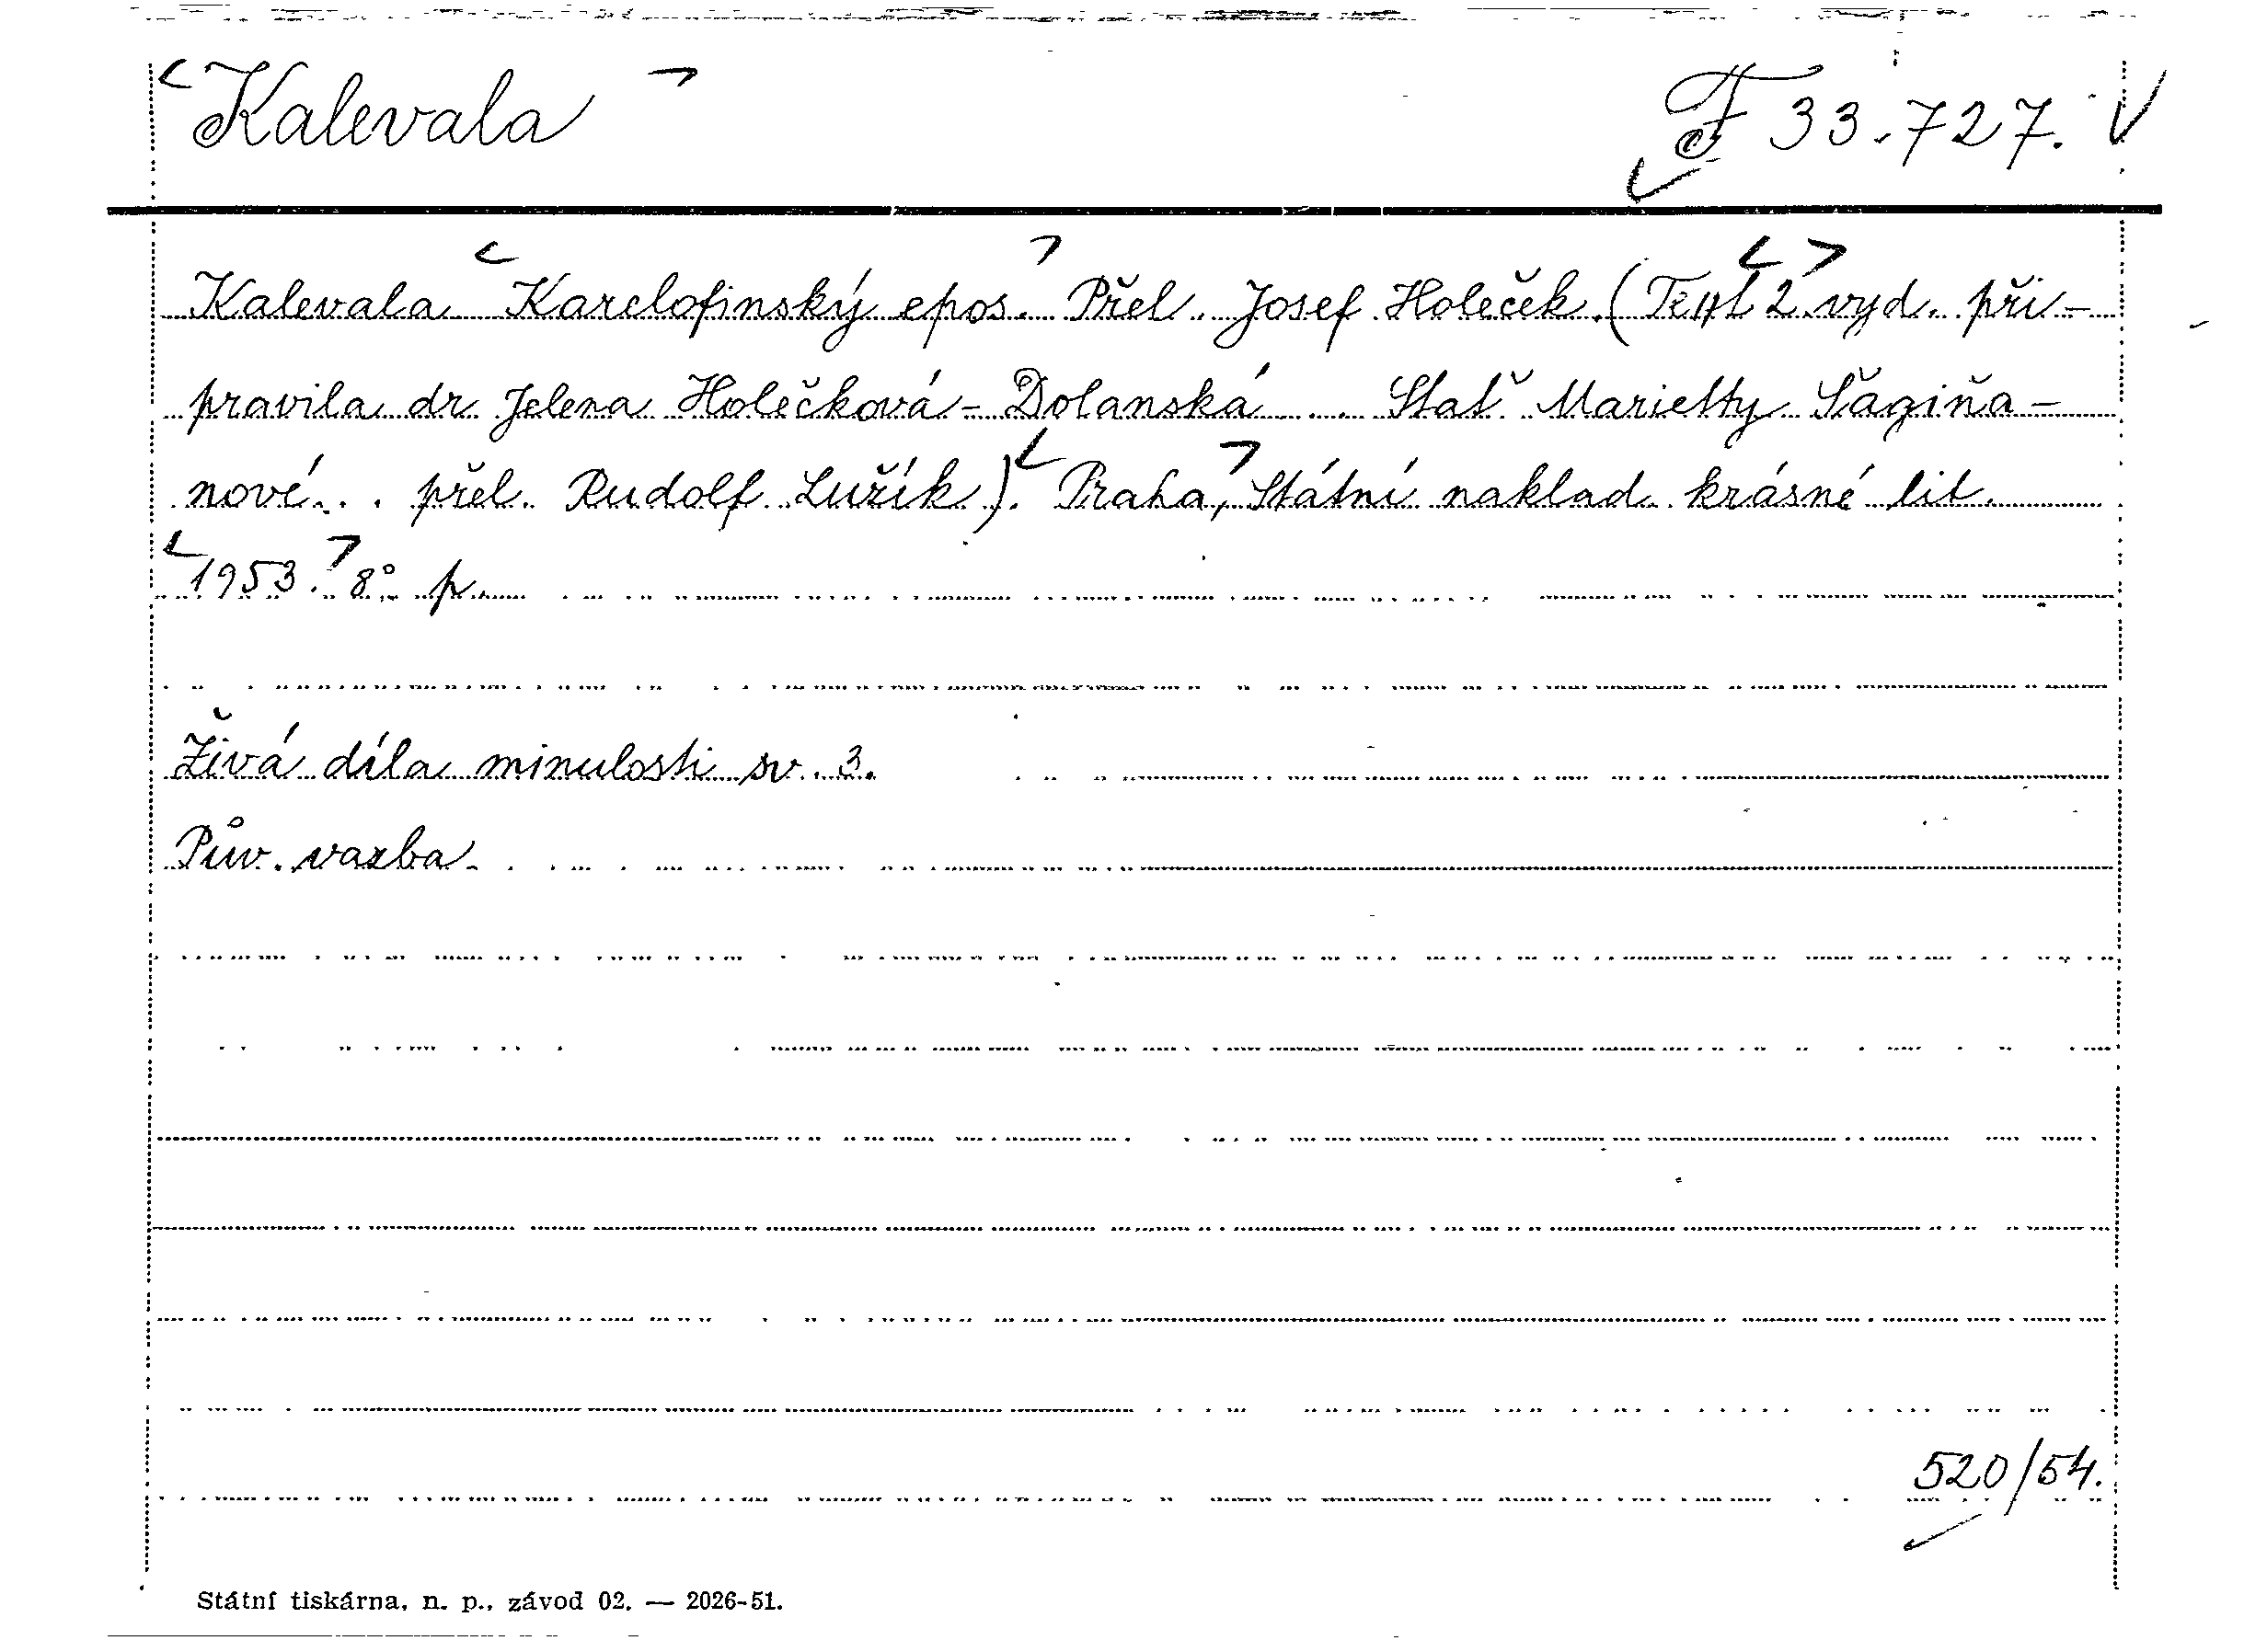 Kalevala F 33.727.
Kalevala Karelofinský epos. Přel. Josef Holeček. (Text 2. vyd. při-
pravila dr Jelena Holečková-Dolanská... Stať Marietty Šagiňa-
nové... přel. Rudolf Lužík). Praha, Státní naklad. krásné lit.
1953. 8° p.
Živá díla minulosti sv. 3.
Pův. vazba
520/54.
Státní tiskárna, n. p., závod 02. — 2026-51.